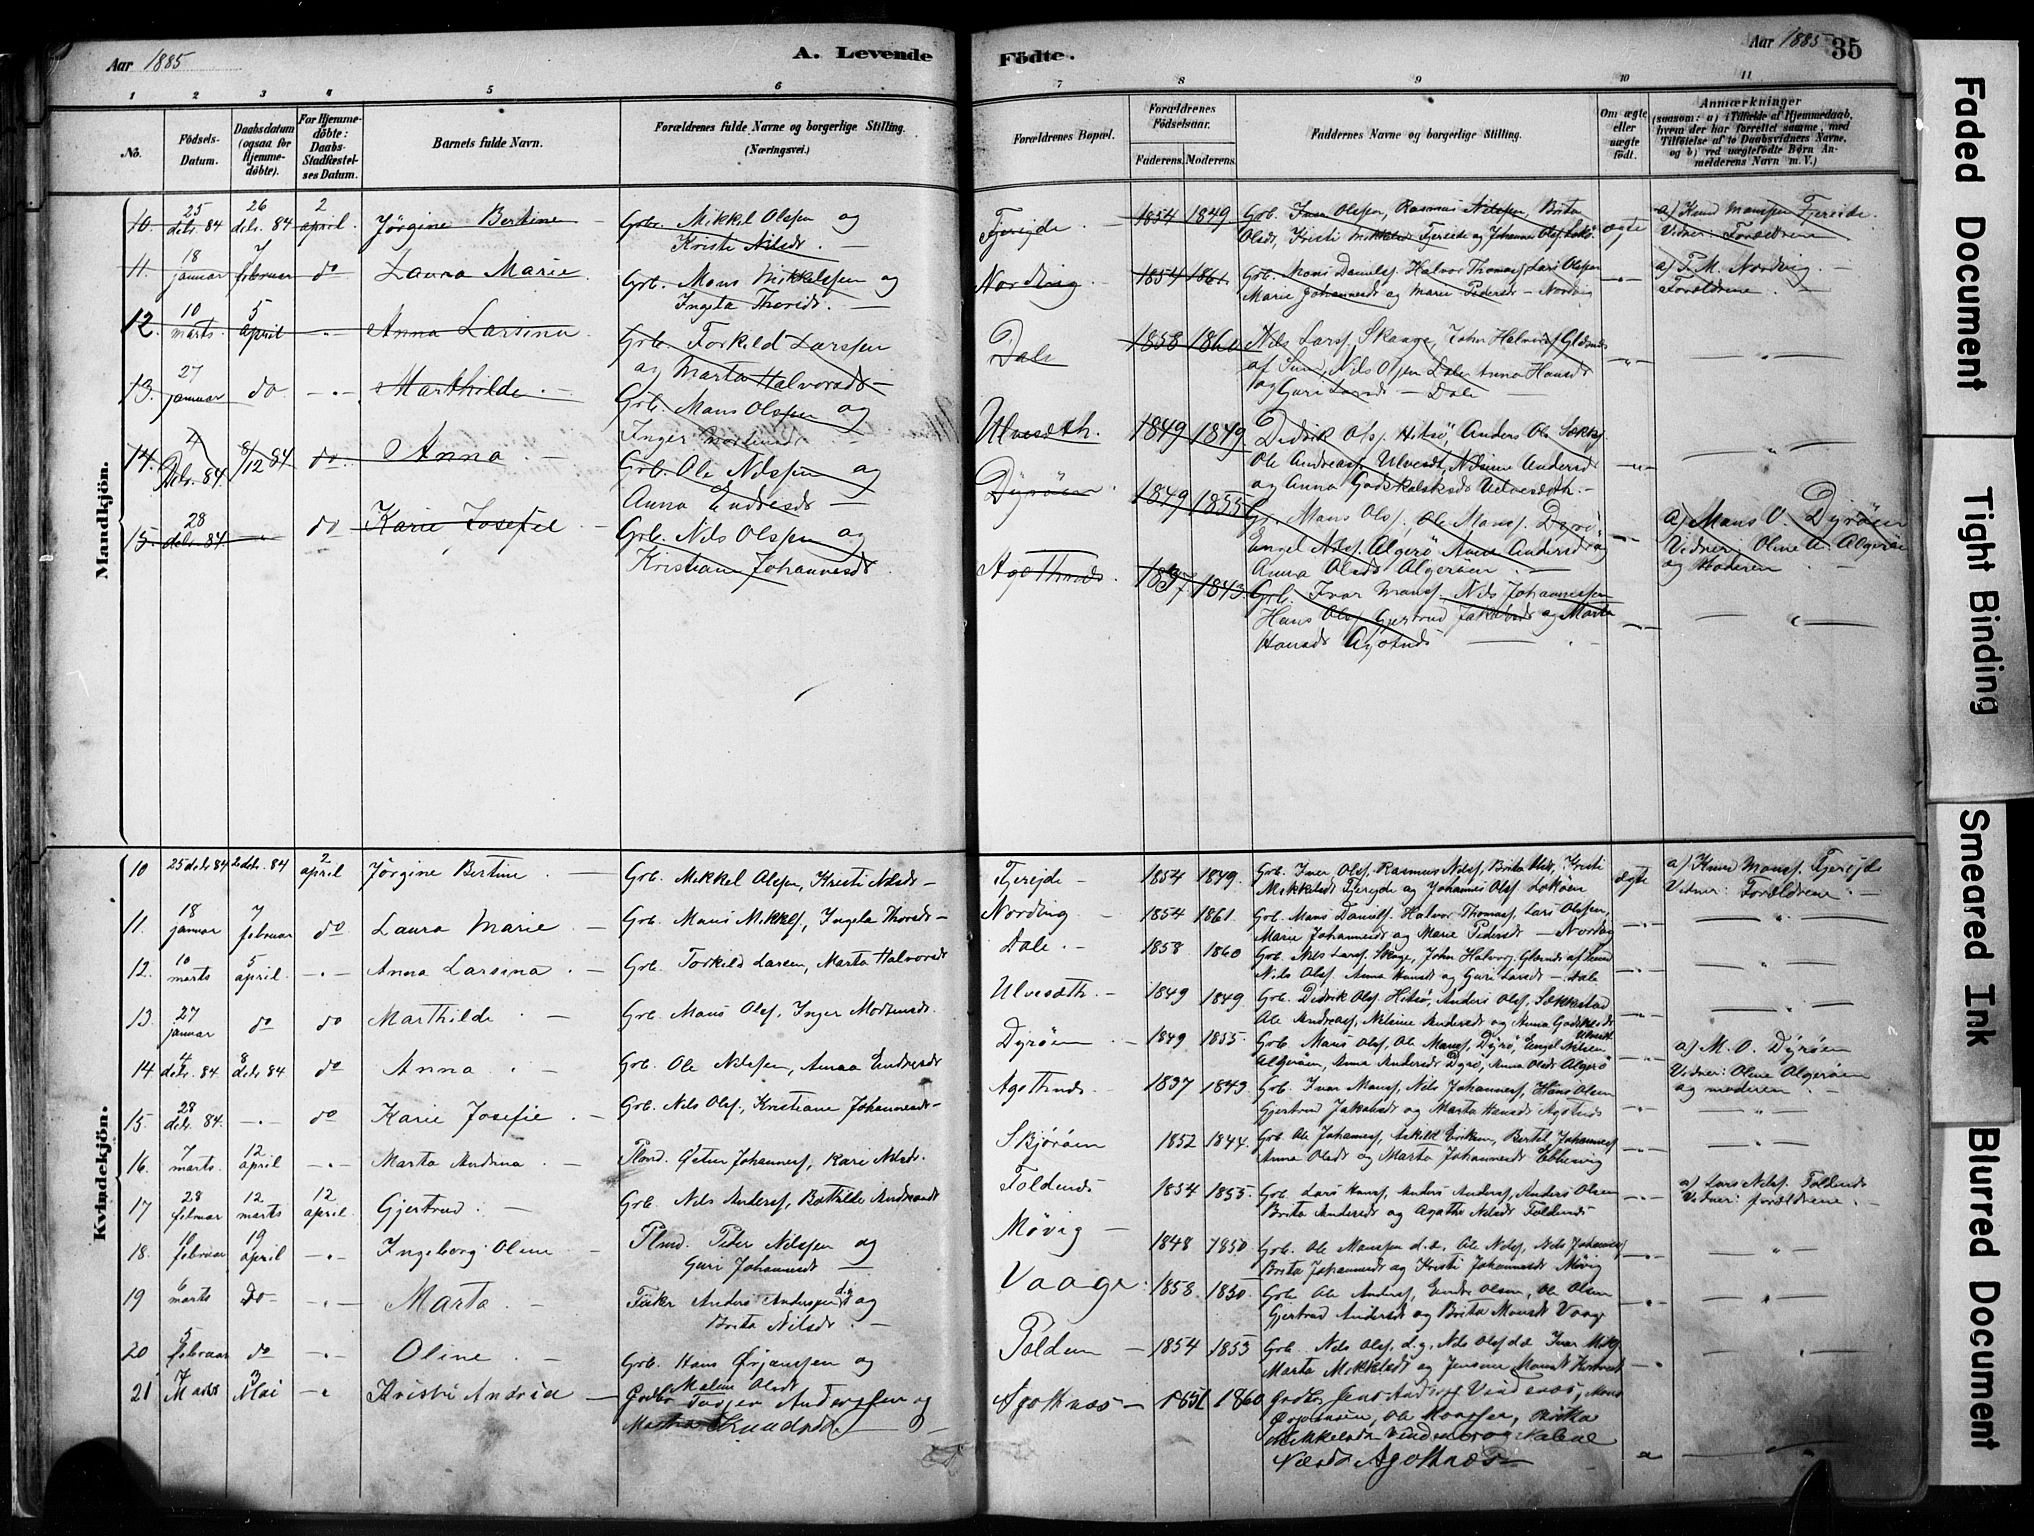 Aar 1885
A. Levende
Födte.
Aar 1885
35
1 2 3 4 5 6 7 8 9 10 11
No.
Födsels-Datum.
Daabsdatum (ogsaa for Hjemmedöbte).
For Hjemmedöbte: Daabs-Stadfæstelses Datum.
Barnets fulde Navn.
Forældrenes fulde Navne og borgerlige Stilling. (Næringsvei.)
Forældrenes Bopæl.
Forældrenes Födselsaar.
Faderens. Moderens.
Faddernes Navne og borgerlige Stilling.
Om ægte eller uægte födt.
Anmærkninger
(saasom: a) i Tilfælde af Hjemmedaab, hvem der har forrettet samme, med Tilföielse af to Daabsvidners Navne, og b) ved uægtefödte Børn Anmelderens Navn m. V.)
Mandkjön.
10. 25 dcb. 84 26 dcb. 84 2 april. Jørgine Bertine Grb. Mikkel Olssen og Kristi Nilsdt. Fjereide 1854 1849. Grb. Iver Olssen, Rasmus Nilssen, Brita
Olsdt, Kristi Mikkelsd Fjereide og Johannes Olss. ægte a) Knud Monssen Fjereide. Vidner: Forældrene
11. 18 januar 7 februar do Laura Marie Grb. Mons Mikkelssen og Ingeta Thorsdt. Nordvig 1854 1861. Grb. Mons Daniels. Halvor Thomas. Lars Olssen
Marie Johannesdt og Marie Pedersdt - Nordvig a) P. M. Nordvig. Forældrene
12. 10 marts 5 april Anna Larsina Grb. Torkild Larssen og Marta Halvorsdt Dale 1858 1860 Nils Larss. Skaage, John Halvors.
af Sund, Nils Olssen Dale Anna Hansdt
og Guri Larsdt - Dale
13. 27 januar do Marthilde Grb. Mons Olssen og Inger Ulvesæth. 1849 1849 Didrik Olss. Hitsø, Anders Ols. Sækks.
Ole Andreass. Ulvesæth, Nilsine Andersdt
og Anna Godskalksdt Ulvesæth.
14. 4 Dcb. 84. 8/12 84 do Anna Grb. Ole Nilssen og Anna Endresdt Dyrøen 1849 1855 Gr. Mons Olss. Ole Monss. Dyrø,
Engel Nilss. Algerø Anne Andersdt og
Anna Olsdt Algerøen a) Mons O. Dyrøen Vidner: Oline A. Algerøen og Moderen
15. 28 dcb. 84. do Karie Josefie Grb. Nils Olssen og Kristiane Johannesdt. Agothnæs. 1837 1843. Grb. Ivar Monss. Nils Johannessen
Hans Ols. Gjertrud Jakobsdt og Marta
Hansdt Agotnæs
Kvindekjön.
10 25 dcb. 84 26 dcb. 84 2 april Jørgine Bertine Grb. Mikkel Olssen, Kristi Nilsdt Fjereide 1854 1849. Grb. Iver Olss. Rasmus Nilss, Brita Olsdt, Kristi
Mikkelsdt Fjereide og Johannes Olss. Lokøen ægte a) Knud Monss. Fjereide Vidner: Forældrene
11. 18 januar 7 februar do Laura Marie Grb. Mons Mikkels, Ingeta Thorsdt Nordvig 1854 1861. Grb. Mons Daniels. Halvor Thomas, Lars Olssen,
Marie Johannesdt og Marie Pedersdt - Nordvig
12. 10 marts 5 april. Anna Larsina Grb. Torkild Larsen, Marta Halvorsdt Dale 1858 1860 Grb. Nils Larss. Skage, John Halvors. Glænæs af Sund
Nils Olss. Anna Hansdt og Guri Larsdt - Dale
13. 27 januar do do Marthilde Grb. Mons Olss, Inger Mortensdt. Ulvesæth. 1849 1849. Grb. Didrik Olss. Hitsø, Anders Olss, Sækkestad
Ole Andreass, Nilsine Andersdt og Anna Godskalksdt Ulvesæt
14 4 dcb. 84 8 dcb. 84 do Anna Grb. Ole Nilssen, Anna Endresdt Dyrøen 1849 1855. Grb. Mons Olss, Ole Monss, Dyrø, Engel Nilsen
Algerøen, Anna Andersdt Dyrø, Anna Olsdt Algerø a) M. O. Dyrøen Vidner: Oline Algerøen og moderen
15. 28 dcb. 84. do Karie Josefie Grb. Nils Olss., Kristiane Johannesdt Agothnæs 1837 1843. Grb. Ivar Monss, Nils Johanness, Hans Olsen
Gjertrud Jakobsdt og Marta Hansdt Agotnæs
16. 7 marts. 12 april Marta Andrina Plmd. Østen Johanness, Kari Nilsdt. Skjørøen 1852 1844. Grb. Ole Johanness, Askild Eriksen, Bertel Johanness
Anna Olsdt og Marta Johannesdt Ebbesvig
17 28 februar 12 marts 12 april. Gjertrud. Grb. Nils Anderss, Bothilde Andreasdt Foldnæs 1854 1855. Grb. Lars Hanss, Anders Anderss, Anders Olsen
Brita Andersdt og Agathe Nilsdt Foldnæs a) Lars Nilss. Foldnæs Vidner: forældrene.
18. 10 februar 19 april Ingeborg Oline Plmd. Peder Nilssen og Guri Johannesdt Møvig 1848 1850 Grb. Ole Monssen d.æ., Ole Nilss, Nils Johanness
Brita Johannesdt og Kristi Johannesdt Møvig
19 6 marts Do Marta Fisker Anders Anderssen og Brita Nilsdt. Vaage 1858. 1850. Grb. Ole Anderss, Endre Olsen, Ole Olsen
Gjertrud Andersdt og Brita Monsdt Vaage
20 5 februar do Oline Grb. Hans Ørjanssen og Malene Olsdt Polden 1854 1853 Grb. Nils Olss. d.y. Nils Olss d.æ Ivar Mikks.
Marta Mikkelsdt og Jensine Monsdt
21 7 Marts 3 Mai Kristi Andrea Grdbr Torger Anderssen og Martha Knudsdt Agothnæs 1851 1860 Grdbr Jens Anderss Vindenæs, Mons
Ørjansen, Ole Monssen, Brita
Mikkelsdt Vindenæs og Malene
Nilsdt Agothnæs
Faded Document
Tight Binding
Smeared Ink
Blurred Document